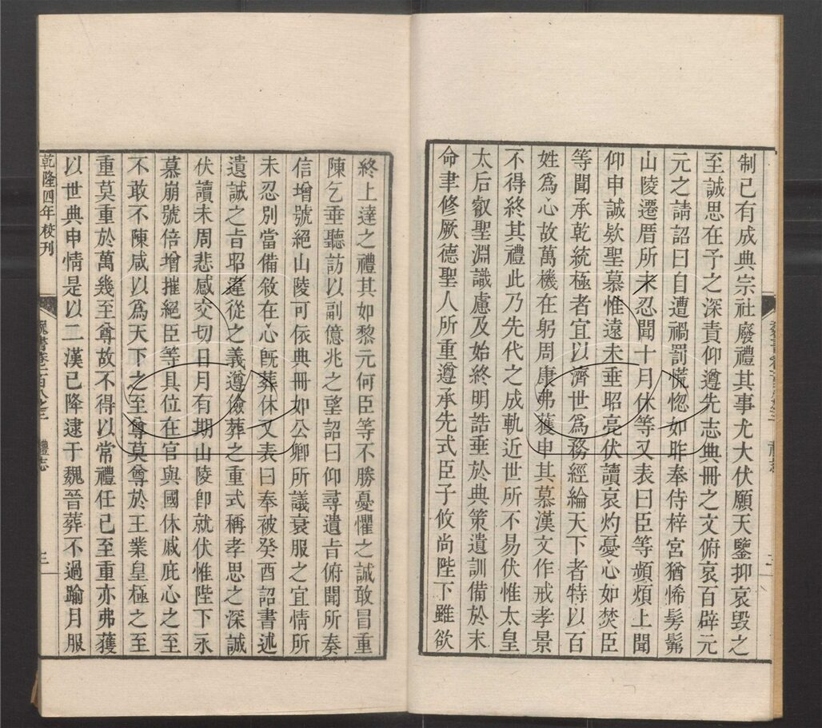 制已有成典宗社廢禮其事尤大伏願天鑒抑哀毀之
至誠思在予之深責仰遵先志典冊之文俯哀百辟元
元之請詔曰自遭禍罰慌惚如昨奉侍梓宮猶悕髣髴
山陵遷厝所未忍聞十月休等又表曰臣等頻煩上聞
仰申誠欵聖慕惟遠未垂昭亮伏讀哀灼憂心如焚臣
等聞承乾統極者宜以濟世爲務經綸天下者特以百
姓爲心故萬機在躬周康弗獲申其慕漢文作戒孝景
不得終其禮此乃先代之成軌近世所不易伏惟太皇
太后叡聖淵識慮及始終明誥垂於典策遺訓備於末
命聿修厥德聖人所重遵承先式臣子攸尚陛下雖欲
終上達之禮其如黎元何臣等不勝憂懼之誠敢冒重
陳乞垂聽訪以副億兆之望詔曰仰尋遺旨俯聞所奏
信增號絕山陵可依典冊如公卿所議衰服之宜情所
未忍別當備敘在心既葬休又表曰奉被癸酉詔書述
遺誠之旨昭違從之義遵儉葬之重式稱孝思之深誠
伏讀未周悲感交切日月有期山陵卽就伏惟陛下永
慕崩號倍增摧絕臣等具位在官與國休戚庇心之至
不敢不陳咸以爲天下之至尊莫尊於王業皇極之至
重莫重於萬幾至尊故不得以常禮任已至重亦弗獲
以世典申情是以二漢已降逮于魏晉葬不過踰月服
乾隆四年校刊
魏書卷一百八之三 禮志 三